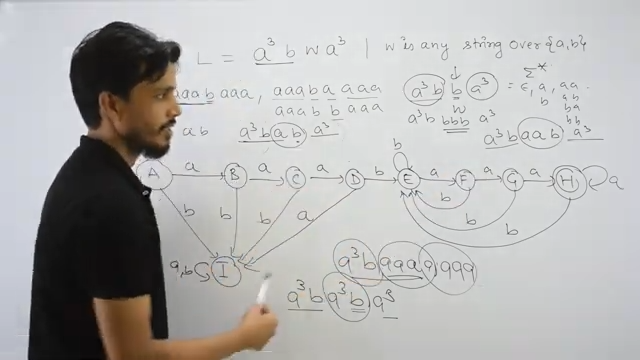 L = a³ b w a³ | w is any string over {a,b}
aaab aaa, aaaba aaa
aaaab b aaa
a³b b a³ = ε, a, aa
Σ*
w
b ab
ba
bb
a³b bbb a³
ab a³b ab a³
a³b aab a³
A a B a C a D b E a F a G a H a
b
b b b a b b b
a,b I
a³b aaa a aaa
a³b a³b a³